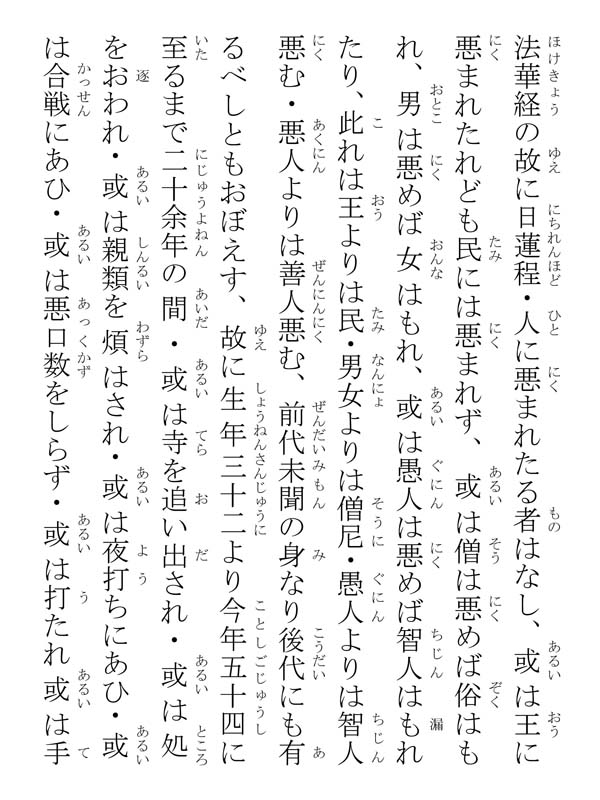 法華経の故に日蓮程・人に悪まれたる者はなし、或は王に
悪まれたれども民には悪まれず、或は僧は悪めば俗はも
れ、男は悪めば女はもれ、或は愚人は悪めば智人はもれ
たり、此れは王よりは民・男女よりは僧尼・愚人よりは智人
悪む・悪人よりは善人悪む、前代未聞の身なり後代にも有
るべしともおぼえす、故に生年三十二より今年五十四に
至るまで二十余年の間・或は寺を追い出され・或は処
をおわれ・或は親類を煩はされ・或は夜打ちにあひ・或
は合戦にあひ・或は悪口数をしらず・或は打たれ或は手